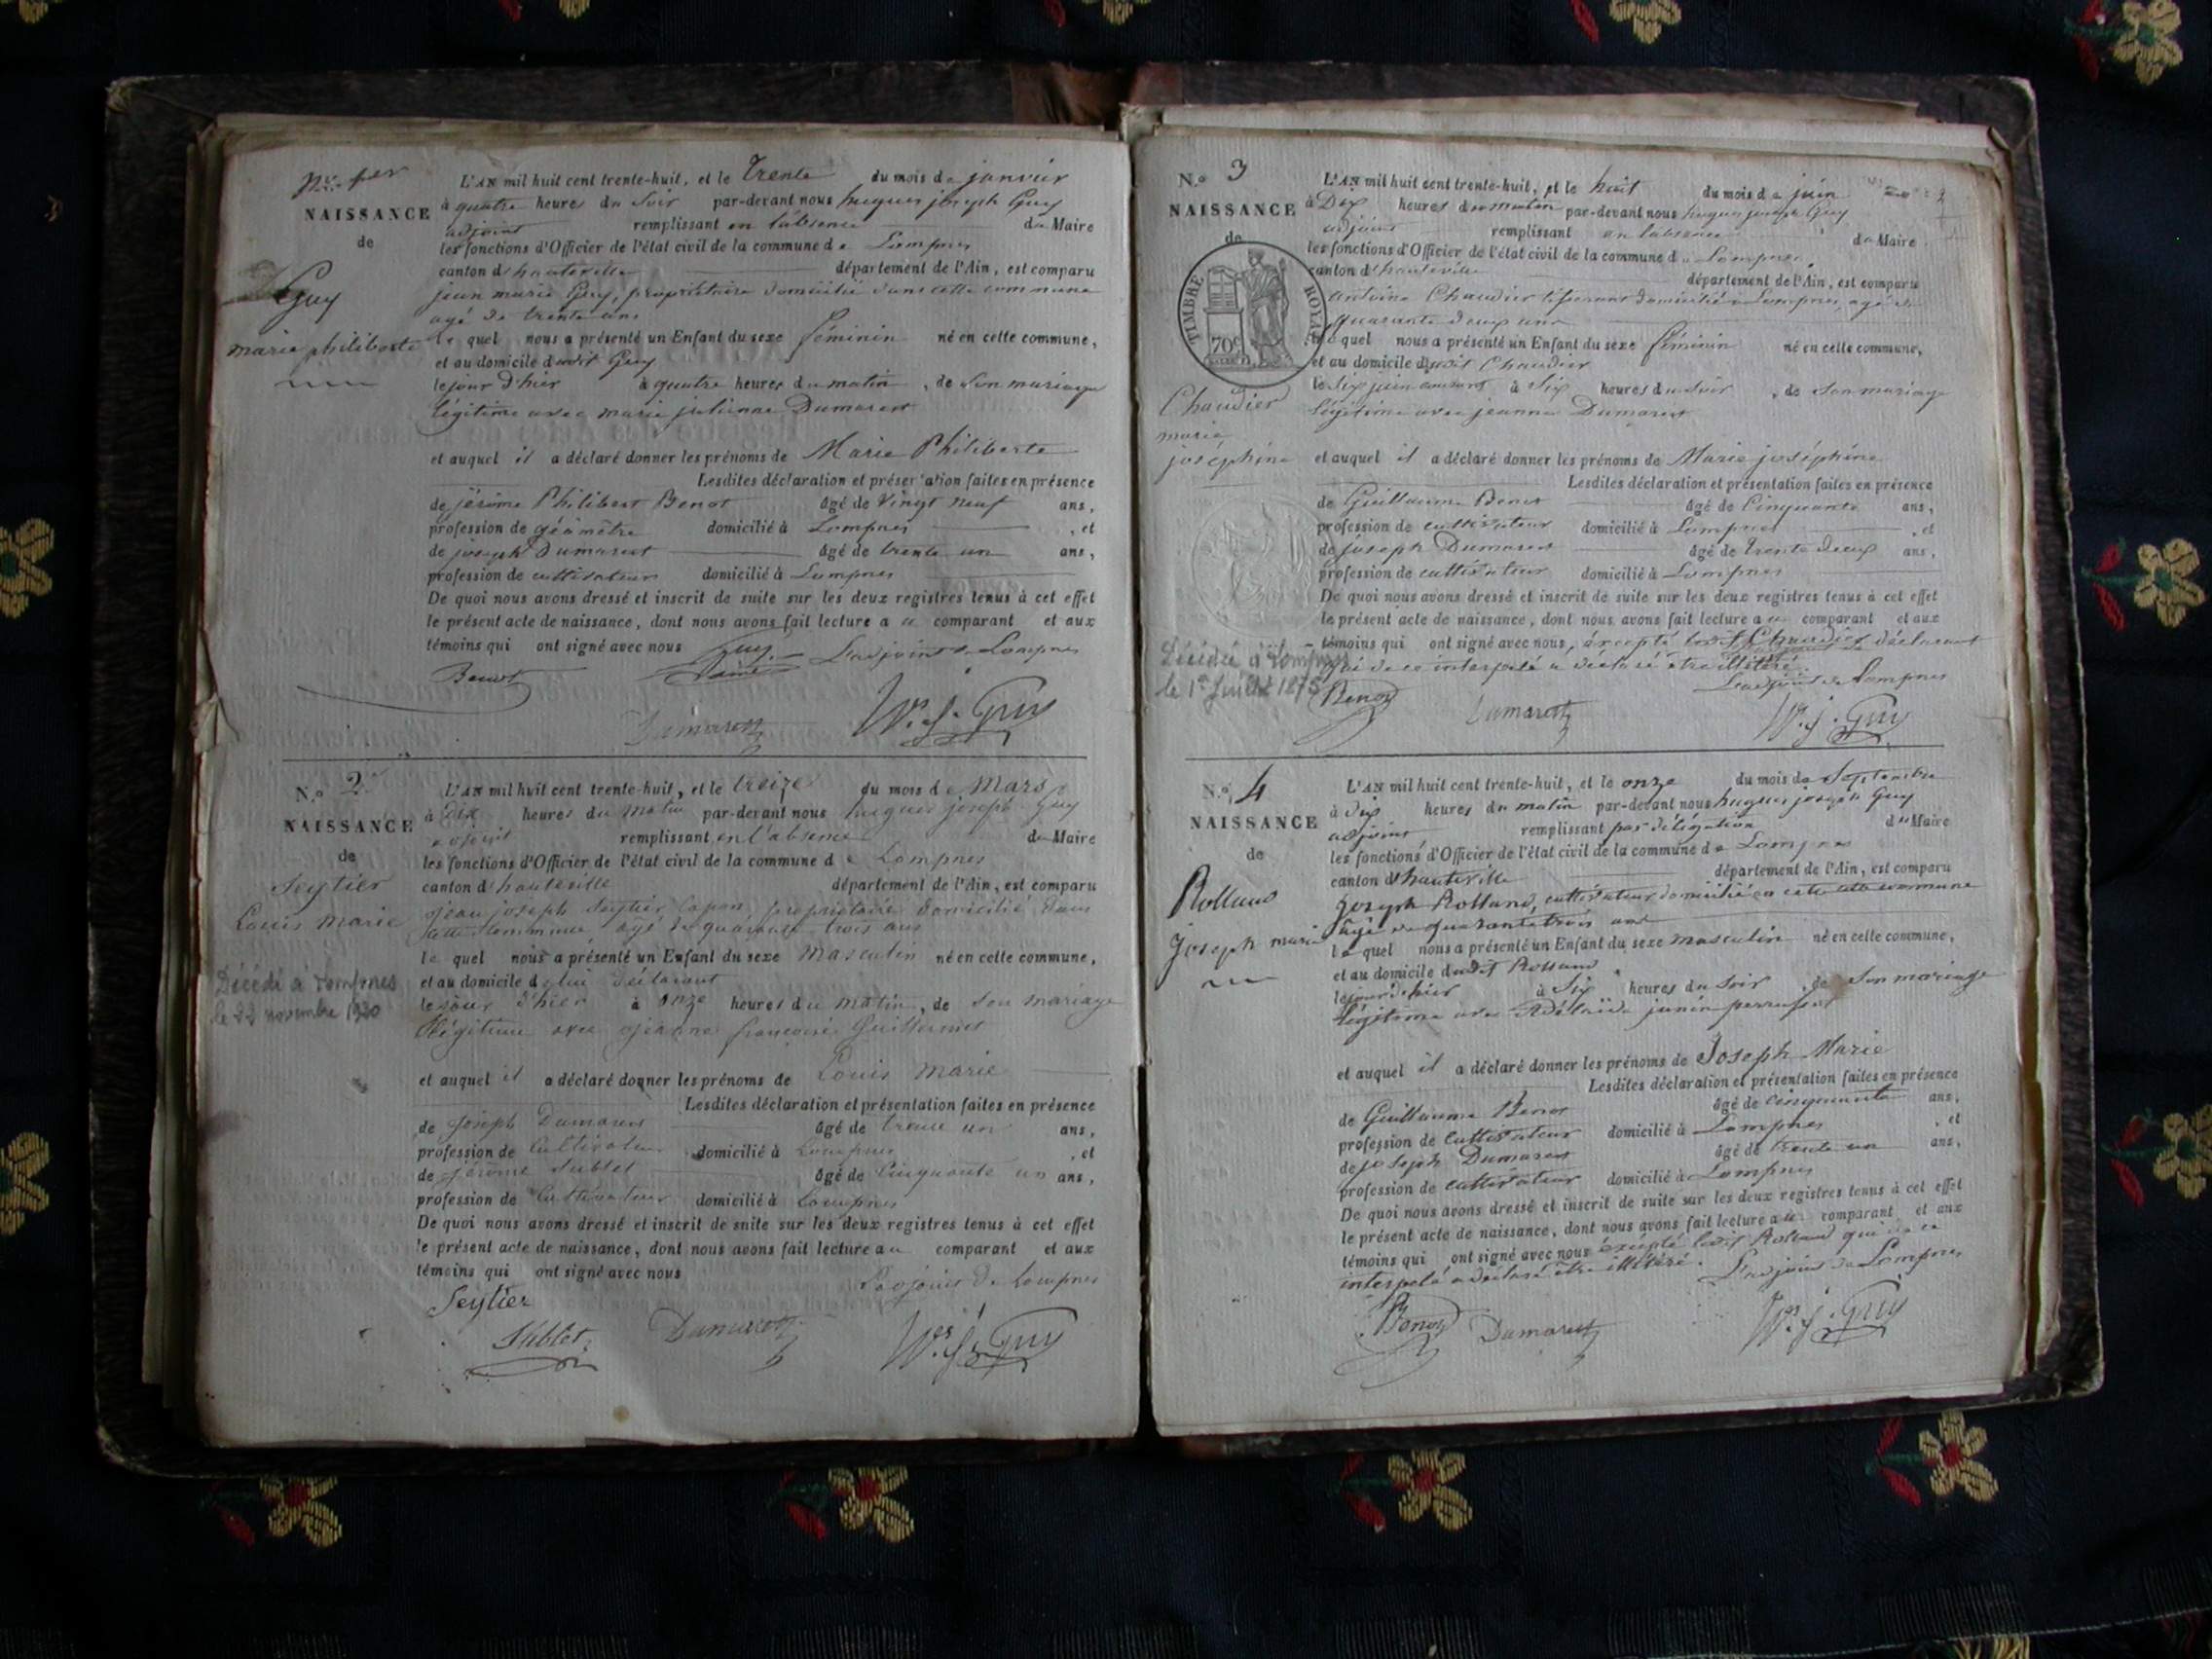 N.º 1er
NAISSANCE
de
Guy
marie philiberte
L'AN mil huit cent trente-huit, et le trente du mois de janvier
à quatre heures du soir par-devant nous hugues joseph Guy
adjoint remplissant en l'absence du Maire
les fonctions d'Officier de l'état civil de la commune de Lompnes
canton d'hauteville département de l'Ain, est comparu
jean marie Guy, propriétaire domicilié dans cette commune
agé de trente ans
le quel nous a présenté un Enfant du sexe féminin né en cette commune,
et au domicile dudit Guy
le jour d'hier à quatre heures du matin, de son mariage
légitime avec marie julienne Dumarest
et auquel il a déclaré donner les prénoms de Marie Philiberte
Lesdites déclaration et présentation faites en présence
de jérôme Philibert Benot âgé de vingt neuf ans,
profession de géomètre domicilié à Lompnes, et
de joseph Dumarest âgé de trente un ans,
profession de cultivateur domicilié à Lompnes
De quoi nous avons dressé et inscrit de suite sur les deux registres tenus à cet effet
le présent acte de naissance, dont nous avons fait lecture au comparant et aux
témoins qui ont signé avec nous Guy L'adjoint de Lompnes
Benot
Dumarest H.es J. Guy
N.º 2
NAISSANCE
de
Seytier
Louis Marie
Décédé à Lompnes
le 22 novembre 1920
L'AN mil huit cent trente-huit, et le treize du mois de Mars
à dix heures du matin par-devant nous hugues joseph Guy
adjoint remplissant en l'absence du Maire
les fonctions d'Officier de l'état civil de la commune de Lompnes
canton d'hauteville département de l'Ain, est comparu
jean joseph Seytier Capon, propriétaire domicilié dans
cette commune agé de quarante trois ans
le quel nous a présenté un Enfant du sexe masculin né en cette commune,
et au domicile de lui déclarant
le jour d'hier à onze heures du matin, de son mariage
légitime avec jeanne françoise Guillermet
et auquel il a déclaré donner les prénoms de Louis Marie
Lesdites déclaration et présentation faites en présence
de Joseph Dumarest âgé de trente un ans,
profession de Cultivateur domicilié à Lompnes, et
de Jérôme Sublet âgé de Cinquante un ans,
profession de Cultivateur domicilié à Lompnes
De quoi nous avons dressé et inscrit de suite sur les deux registres tenus à cet effet
le présent acte de naissance, dont nous avons fait lecture au comparant et aux
témoins qui ont signé avec nous
L'adjoint de Lompnes
Seytier
Sublet Dumarest H.es J. Guy
N.º 3
NAISSANCE
de
TIMBRE ROYAL
70c
Chaudier
marie
joséphine
Décédée à Lompnes
le 1er Juillet 1875
L'AN mil huit cent trente-huit, et le huit du mois de juin
à Dix heures du matin par-devant nous hugues joseph Guy
adjoint remplissant en l'absence du Maire
les fonctions d'Officier de l'état civil de la commune de Lompnes
canton d'hauteville département de l'Ain, est comparu
antoine Chaudier tisserant domicilié à Lompnes, agé de
quarante deux ans
le quel nous a présenté un Enfant du sexe féminin né en cette commune,
et au domicile dudit Chaudier
le six juin courant à six heures du soir, de son mariage
légitime avec jeanne Dumarest
et auquel il a déclaré donner les prénoms de Marie joséphine
Lesdites déclaration et présentation faites en présence
de Guillaume Benot âgé de Cinquante ans,
profession de cultivateur domicilié à Lompnes, et
de joseph Dumarest âgé de trente deux ans,
profession de cultivateur domicilié à Lompnes
De quoi nous avons dressé et inscrit de suite sur les deux registres tenus à cet effet
le présent acte de naissance, dont nous avons fait lecture au comparant et aux
témoins qui ont signé avec nous, excepté ledit Chaudier déclarant
qui de ce interpelé a déclaré être illitéré.
L'adjoint de Lompnes
Benot Dumarest H.es J. Guy
N.º 4
NAISSANCE
de
Rolland
joseph marie
L'AN mil huit cent trente-huit, et le onze du mois de Septembre
à dix heures du matin par-devant nous hugues joseph Guy
adjoint remplissant par délégation du Maire
les fonctions d'Officier de l'état civil de la commune de Lompnes
canton d'hauteville département de l'Ain, est comparu
joseph Rolland, cultivateur domicilié en cette commune
agé de quarante trois ans
le quel nous a présenté un Enfant du sexe masculin né en cette commune,
et au domicile dudit Rolland
le jour d'hier à six heures du soir, de son mariage
légitime avec Adélaïde
et auquel il a déclaré donner les prénoms de Joseph Marie
Lesdites déclaration et présentation faites en présence
de Guillaume Benot âgé de cinquante ans,
profession de cultivateur domicilié à Lompnes, et
de joseph Dumarest âgé de trente un ans,
profession de cultivateur domicilié à Lompnes
De quoi nous avons dressé et inscrit de suite sur les deux registres tenus à cet effet
le présent acte de naissance, dont nous avons fait lecture au comparant et aux
témoins qui ont signé avec nous excepté ledit Rolland qui de ce
interpelé a déclaré être illitéré. L'adjoint de Lompnes
Benot Dumarest H.es J. Guy